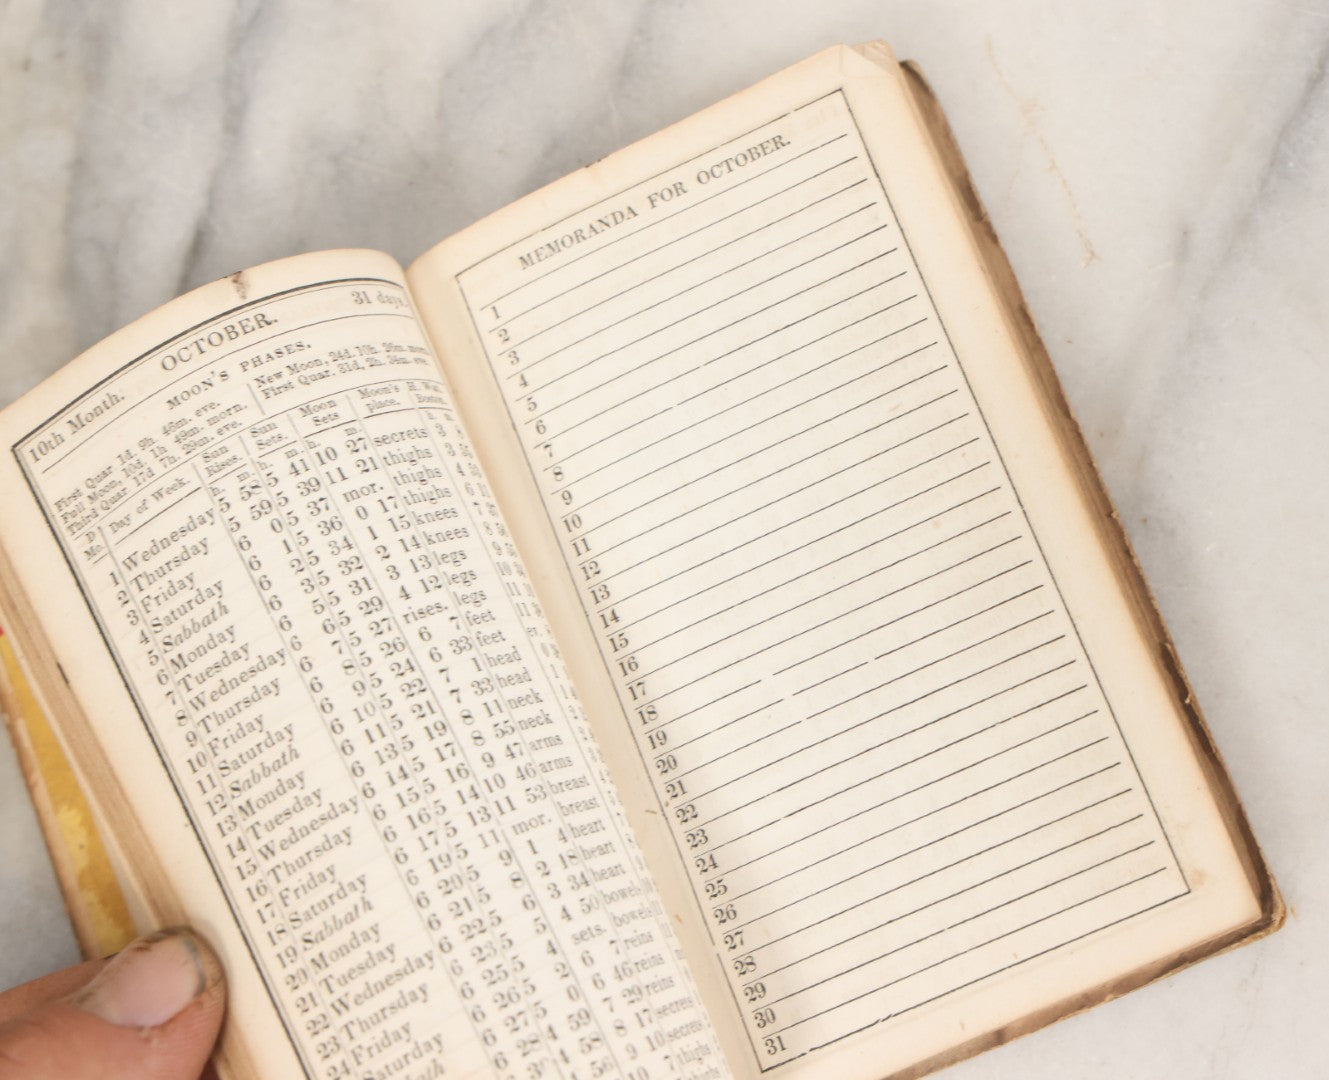 10th Month. OCTOBER. 31 days.
MOON'S PHASES.
First Quar. 1d. 9h. 46m. eve.
Full Moon, 10d 1h 49m. morn.
Third Quar 17d 7h. 29m. eve.
New Moon, 24d. 10h. 26m. morn
First Quar. 31d, 2h. 34m. eve.
D Mo. Day of Week. Sun Rises. Sun Sets. Moon Sets Moon's place. H. Boston.
h. m. h. m. h. m. h. m.
1 Wednesday 5 58 5 41 10 27 secrets
2 Thursday 5 59 5 39 11 21 thighs
3 Friday 6 0 5 37 mor. thighs
4 Saturday 6 1 5 36 0 17 thighs
5 Sabbath 6 2 5 34 1 15 knees
6 Monday 6 3 5 32 2 14 knees
7 Tuesday 6 5 5 31 3 13 legs
8 Wednesday 6 6 5 29 4 12 legs
9 Thursday 6 7 5 27 rises. legs
10 Friday 6 8 5 26 6 7 feet
11 Saturday 6 9 5 24 6 33 feet
12 Sabbath 6 10 5 22 7 1 head
13 Monday 6 11 5 21 7 33 head
14 Tuesday 6 13 5 19 8 11 neck
15 Wednesday 6 14 5 17 8 55 neck
16 Thursday 6 15 5 16 9 47 arms
17 Friday 6 16 5 14 10 46 arms
18 Saturday 6 17 5 13 11 53 breast
19 Sabbath 6 19 5 11 mor. breast
20 Monday 6 20 5 9 1 4 heart
21 Tuesday 6 21 5 8 2 18 heart
22 Wednesday 6 22 5 6 3 34 heart
23 Thursday 6 23 5 5 4 50 bowels
24 Friday 6 25 5 4 sets. bowels
Saturday 6 26 5 2 6 7 reins
6 27 5 0 6 46 reins
6 28 4 59 7 29 reins
4 58 8 17 secrets
56 9 10 secrets
10 7 thighs
thighs
MEMORANDA FOR OCTOBER.
1
2
3
4
5
6
7
8
9
10
11
12
13
14
15
16
17
18
19
20
21
22
23
24
25
26
27
28
29
30
31